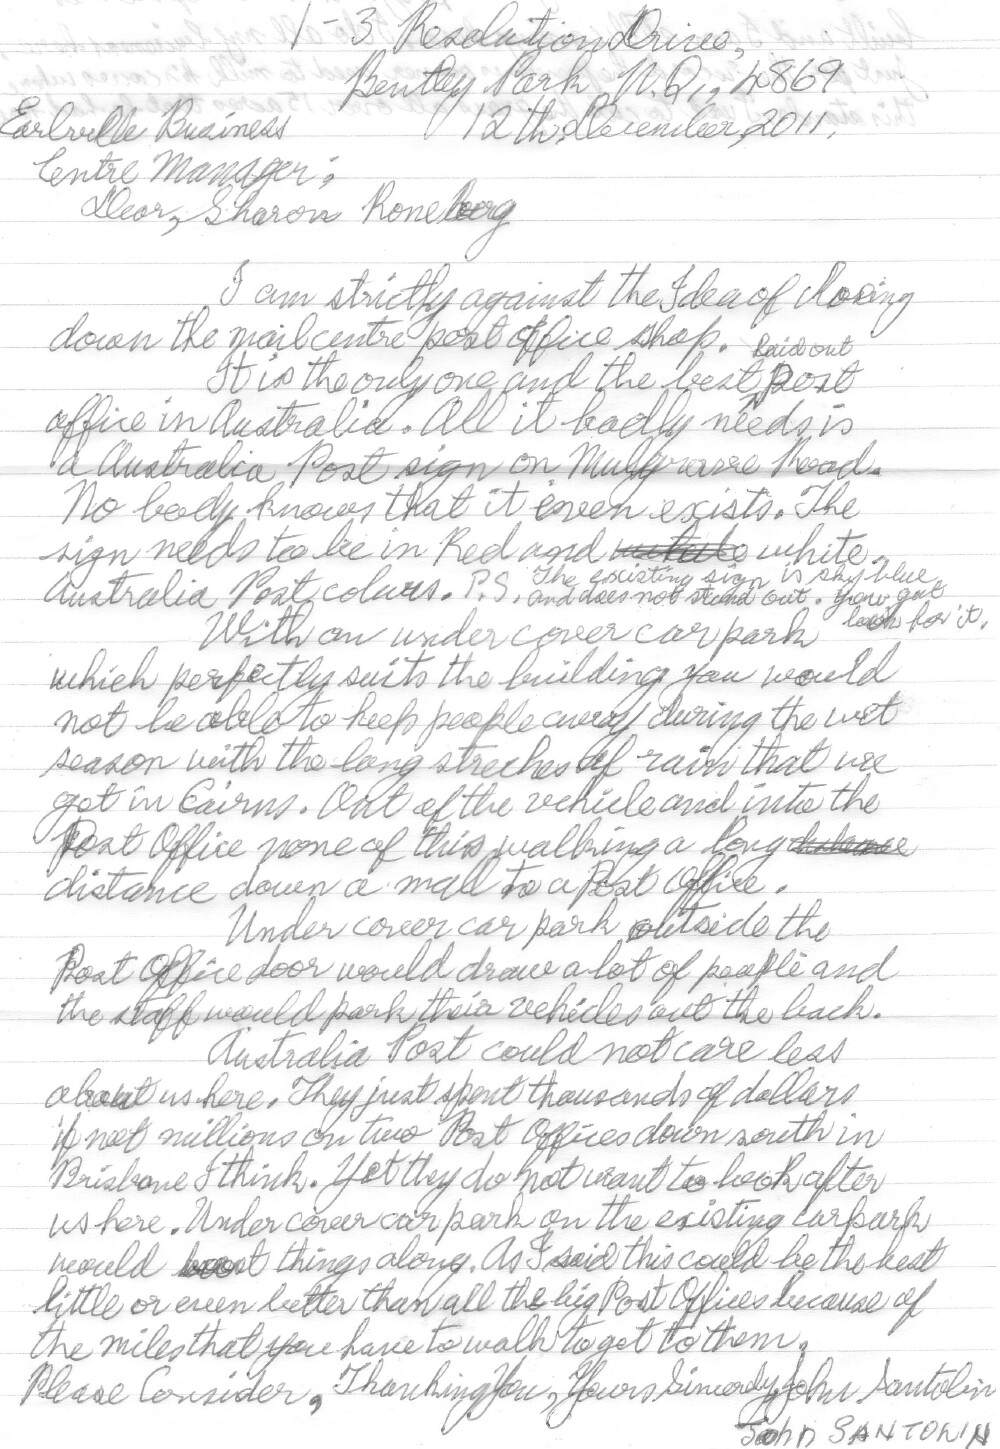 1-3 Resolution Drive,
Bentley Park, N.Q., 4869
Earlville Business 12th, December, 2011.
Centre Manager;
Dear, Sharon Roneberg
I am strictly against the Idea of Closing
down the mail centre post office shop.
Laid out
It is the only one and the best, post
office in Australia. All it badly needs is
a Australia Post sign on Mulgrave Road.
No body knows that it even exists. The
sign needs to be in Red and white.
Australia Post colours. P.S. The existing sign is sky blue
and does not stand out. You got
look for it.
With an under cover car park
which perfectly suits the building you would
not be able to keep people away during the wet
season with the long streches of rain that we
get in Cairns. Out of the vehicle and into the
Post Office none of this walking a long
distance down a mall to a Post Office.
Under cover car park outside the
Post Office door would draw a lot of people and
the staff would park their vehicles out the back.
Australia Post could not care less
about us here. They just spent thousands of dollars
if not millions on two Post Offices down south in
Brisbane I think. Yet they do not want to look after
us here. Under cover car park on the existing carpark
would boost things along. As I said this could be the best
little or even better than all the big Post Offices because of
the miles that you have to walk to get to them.
Please Consider, Thanking You, Yours Sincerely, John Santolin
John SANTOLIN